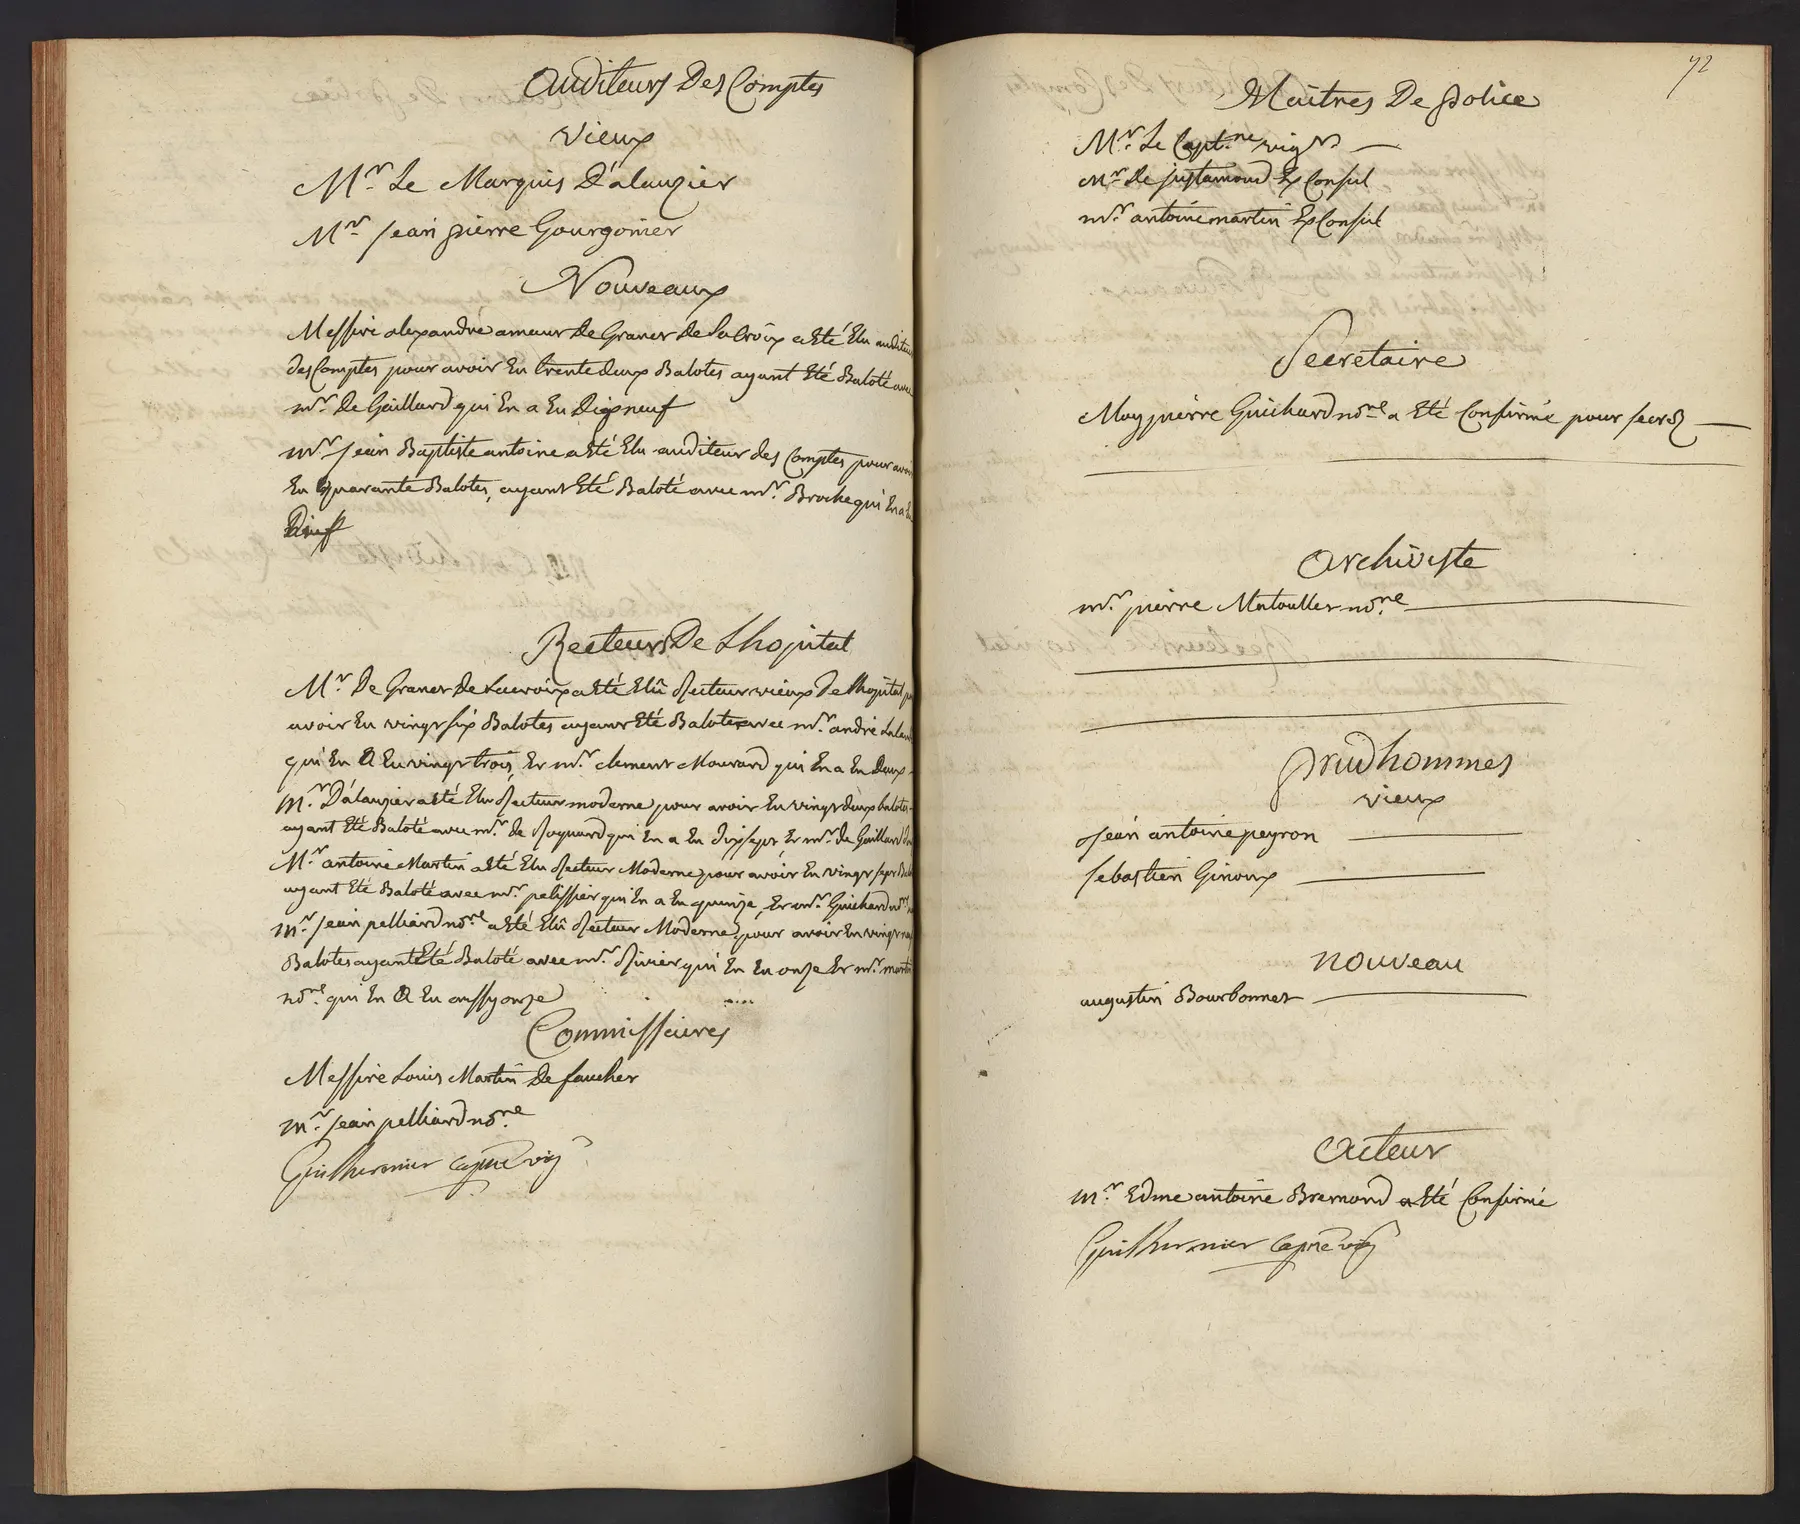 Auditeurs Des Comptes
vieux
Mr. Le Marquis D'alauzier
Mr. Jean pierre Gourgonier
Nouveaux
Messire alexandre ameur De Granet de Lacroix a Eté Elu auditeur
des Comptes pour avoir Eu trente deux Balotes ayant Eté Baloté avec
mr. De Gaillard qui En a Eu Dixneuf
mr. Jean Baptiste antoine a Eté Elu auditeur des Comptes pour avoir
Eu quarante Balotes, ayant Eté Baloté avec mr. Broche qui En a Eu
Recteurs De Lhopital
Mr. De Granet De Lacroix a Eté Elû Recteur vieux De lhopital pr
avoir Eu vingt six Balotes ayant Eté Baloté avec mr. andré
qui En A Eu vingt trois, Et mr. clement Mourard qui En a Eu Deux
mr. D'alauzier a Eté Elu Recteur moderne pour avoir Eu vingt deux balotes
ayant Eté Baloté avec mr. de Roquard qui En a Eu dixsept Et mr. de Gaillard
Mr. antoine Martin a Eté Elu Recteur Moderne pour avoir Eu vingt sept
ayant Eté Baloté avec mr. pelissier qui En a Eu quinze, Et mr. Guichard nore
mr. Jean pelliard nore a Eté Elû Recteur Moderne, pour avoir Eu vingt
Balotes ayant Eté Baloté avec mr. Rivier qui En Eu onze Et mr. martin
nore. qui En A Eu aussy onze
Commissaires
Messire Louis Martin De faucher
mr. Jean pelliard nore.
Guilhermier capne vig
72
Maitres De police
Mr. Le Captne vigr
mr. de justamond Ex Consul
mr. antoine martin Ex Consul
Secretaire
Moy pierre Guichard nore a Eté Confirmé pour secre
archiviste
mr. pierre Matoulles nore
prudhommes
vieux
Jean antoine peyron
sebastien Ginoux
nouveau
augustin Bourbonnet
acteur
mr. Edme antoine Bremond a Eté Confirmé
Guilhermier capne vig